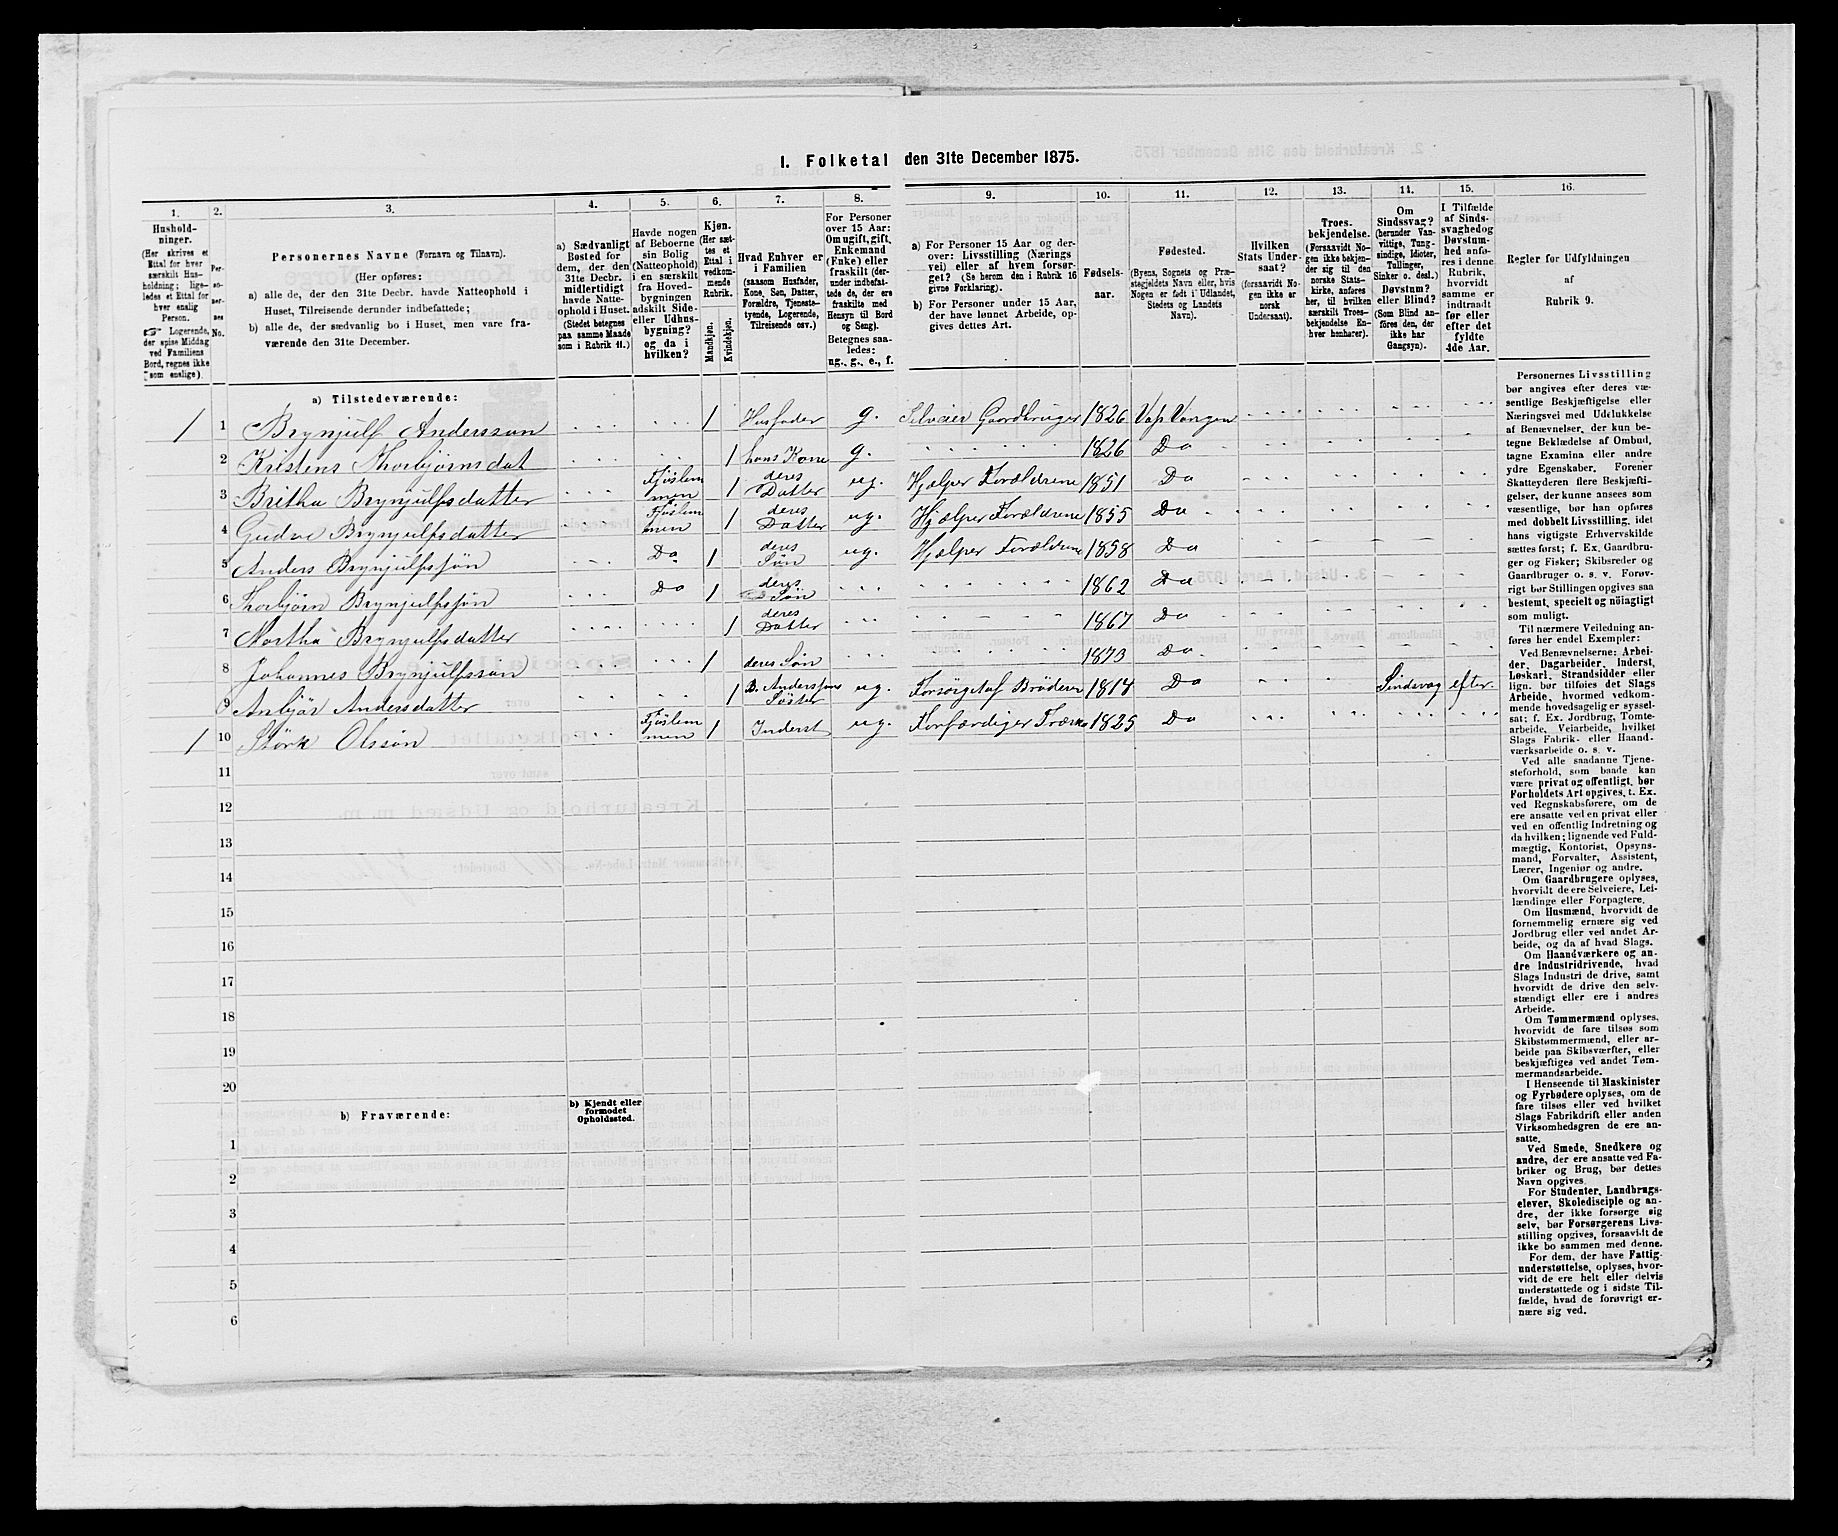 I. Folketal den 31te December 1875.
1. 2. 3. 4. 5. 6. 7. 8. 9. 10. 11. 12. 13. 14. 15. 16.
Husholdninger.
(Her skrives et
Ettal for hver
særskilt Husholdning;
ligeledes et Ettal for
hver enslig
Person.
☞ Logerende,
der spise Middag
ved Familiens
Bord, regnes ikke
som enslige).
Personernes No.
Personernes Navne (Fornavn og Tilnavn).
(Her opføres:
a) alle de, der den 31te Decbr. havde Natteophold i
Huset, Tilreisende derunder indbefattede;
b) alle de, der sædvanlig bo i Huset, men vare fraværende
den 31te December.
a) Sædvanligt
Bosted for
dem, der den
31te Decbr.
midlertidigt
havde Natteophold
i Huset.
(Stedet betegnes
paa samme Maade
som i Rubrik 11.)
Havde nogen
af Beboerne
sin Bolig
(Natteophold)
i en særskilt
fra Hovedbygningen
adskilt Side-
eller Udhusbygning?
og da i
hvilken?
Kjøn.
(Her sættes
et
Ettal i
vedkommende
Rubrik.
Mandkjøn.
Kvindekjøn.
Hvad Enhver er
i Familien
(saasom Husfader,
Kone, Søn, Datter,
Forældre, Tjenestetyende,
Logerende,
Tilreisende osv.)
For Personer
over 15 Aar:
Om ugift, gift,
Enkemand
(Enke) eller
fraskilt (derunder
indbefattede
de, der ere
fraskilte med
Hensyn til Bord
og Seng).
Betegnes saaledes:
ug., g., e., f.
a) For Personer 15 Aar og derover:
Livsstilling (Nærings
vei) eller af hvem forsørget?
(Se herom den i Rubrik 16
givne Forklaring).
b) For Personer under 15 Aar,
der have lønnet Arbeide, opgives
dettes Art.
Fødselsaar.
Fødested.
(Byens, Sognets og Præstegjeldets
Navn eller, hvis
Nogen er født i Udlandet,
Stedets og Landets
Navn).
Hvilken
Stats Undersaat?
(forsaavidt Nogen
ikke er
norsk
Undersaat).
Troesbekjendelse.
(Forsaavidt Nogen
ikke bekjender
sig til den
norske Statskirke,
anføres
her, til hvilken
særskilt Troesbekjendelse
Enhver
henhører).
Om
Sindssvag?
(herunder Vanvittige,
Tungsindige,
Idioter,
Tullinger,
Sinker o. desl.)
Døvstum?
eller Blind?
(Som Blind anføres
den, der
ikke har
Gangsyn).
I Tilfælde
af Sindssvaghed
og
Døvstumhed
anføres
i denne
Rubrik,
hvorvidt
samme er
indtraadt
før eller
efter det
fyldte
4de Aar.
Regler for Udfyldningen
af
Rubrik 9.
a) Tilstedeværende:
1 1 Brynjulf Anderssøn 1 Husfader g. Selveier Gaardbruger 1826 Vangen
2 Kristens Thorbjørnsdat 1 hans Kone g. 1826 Do
3 Britha Brynjulfsdatter Fjøslemmen 1 deres Datter ug. Hjælper Forældrene 1851 Do
4 Gudve Brynjulfsdatter Fjøslemmen 1 deres Datter ug. Hjælper Forældrene 1855 Do
5 Anders Brynjulfssøn Do 1 deres Søn ug. Hjælper Forældrene 1858 Do
6 Thorbjørn Brynjulfssøn Do 1 deres Søn 1862 Do
7 Martha Brynjulfsdatter 1 deres Datter 1867 Do
8 Johannes Brynjulfssøn 1 deres Søn 1873 Do
9 Anbjør Andersdatter 1 B. Anderssøns Søster ug. Forsørget af Broderen 1814 Do Sindsvag efter
1 10 Størk Olssøn Fjøslemmen 1 Inderst ug. Forfærdiger 1825 Do
11
12
13
14
15
16
17
18
19
20
b) Fraværende:
b) Kjendt eller
formodet
Opholdssted.
1
2
3
4
5
6
Personernes Livsstilling
bør angives efter deres væsentlige
Beskjæftigelse eller
Næringsvei med Udelukkelse
af Benævnelser, der kun betegne
Beklædelse af Ombud,
tagne Examina eller andre
ydre Egenskaber. Forener
Skatteyderen flere Beskjæftigelser,
der kunne ansees som
væsentlige, bør han opføres
med dobbelt Livsstilling, idet
hans vigtigste Erhvervskilde
sættes først; f. Ex. Gaardbruger
og Fisker; Skibsreder og
Gaardbruger o. s. v. Forøvrigt
bør Stillingen opgives saa
bestemt, specielt og nøiagtigt
som muligt.
Til nærmere Veiledning anføres
her endel Exempler:
Ved Benævnelserne: Arbeider,
Dagarbeider, Inderst,
Løskarl, Strandsidder eller
lign. bør tilføies det Slags
Arbeide, hvormed vedkommende
hovedsagelig er sysselsat;
f. Ex. Jordbrug, Tomtearbeide,
Veiarbeide, hvilket
Slags Fabrik- eller Haandværksarbeide
o. s. v.
Ved alle saadanne Tjenesteforhold,
som baade kan
være privat og offentligt, bør
Forholdets Art opgives, t. Ex.
ved Regnskabsførere, om de
ere ansatte ved en privat eller
ved en offentlig Indretning og
da hvilken; lignende ved Fuldmægtig,
Kontorist, Opsynsmand,
Forvalter, Assistent,
Lærer, Ingeniør og andre.
Om Gaardbrugere oplyses,
hvorvidt de ere Selveiere, Leilændinge
eller Forpagtere.
Om Husmænd, hvorvidt de
fornemmelig ernære sig ved
Jordbrug eller ved andet Arbeide,
og da af hvad Slags.
Om Haandværkere og andre
Industridrivende, hvad
Slags Industri de drive, samt
hvorvidt de drive den selvstændigt
eller ere i andres
Arbeide.
Om Tømmermænd oplyses,
hvorvidt de fare tilsøs som
Skibstømmermænd, eller arbeide
paa Skibsværfter, eller
beskjæftiges ved andet Tømmermandsarbeide.
I Henseende til Maskinister
og Fyrbødere oplyses, om de
fare tilsøs eller ved hvilket
Slags Fabrikdrift eller anden
Virksomhedsgren de ere ansatte.
Ved Smede, Snedkere og
andre, der ere ansatte ved Fabriker
og Brug, bør dettes
Navn opgives.
For Studenter, Landbrugselever,
Skoledisciple og andre,
der ikke forsørge sig
selv, bør Forsørgerens Livsstilling
opgives, forsaavidt de
ikke bo sammen med denne.
For dem, der have Fattigunderstøttelse,
oplyses, hvorvidt
de ere helt eller delvis
understøttede og i sidste Tilfælde,
hvad de forøvrigt ernære
sig ved.